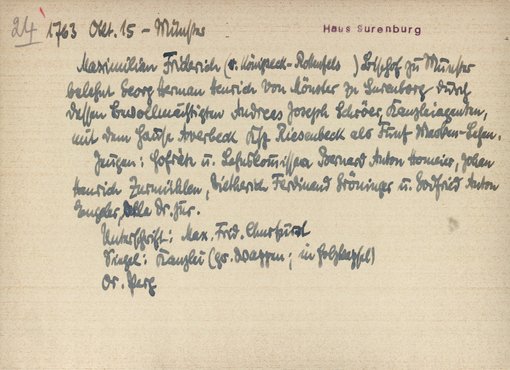 24 1763 Okt. 15 - Münster
Haus Surenburg
Maximilian Friderich (v. Königseck-Rottenfels ) Bischof zu Münster
belehnt Georg Herman Henrich von Mönster zu Surenborg durch
dessen Bevollmächtigten Andreas Joseph Schröer, Kanzleiagenten,
mit dem Hause Averbeck Ksp. Riesenbeck als Fünf Marken-Lehen.
Zeugen: Hofräte u. Lehnskommissare Bernard Anton Homeier, Johan
Henrich Zurmühlen, Dietherich Ferdinand Gröninger u. Godfried Anton
Zengeler, Alle Dr. jur.
Unterschrift: Max. Frid. Churfürst
Siegel: Kanzlei (gr. Wappen; in Holzkapsel)
Or. Perg